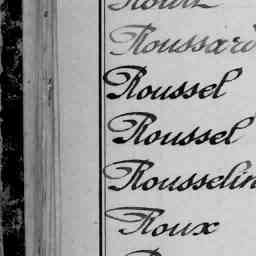 Roussard
Roussel
Roussel
Rousselin
Roux